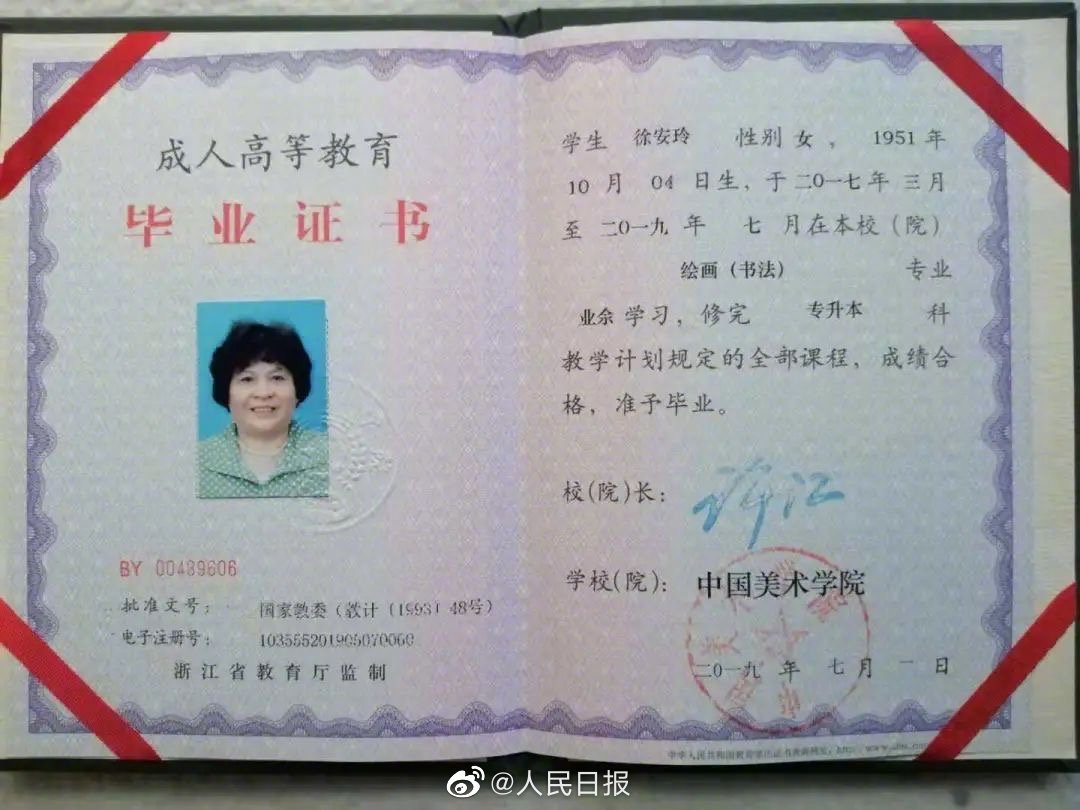 成人高等教育
毕业证书
BY 00489606
批准文号: 国家教委(教计(1993)48号)
电子注册号: 103555201905070060
浙江省教育厅监制
学生 徐安玲 性别 女, 1951 年
10 月 04 日生, 于 二〇一七 年 三 月
至 二〇一九 年 七 月在本校(院)
绘画(书法) 专业
业余 学习, 修完 专升本 科
教学计划规定的全部课程, 成绩合
格, 准予毕业。
校(院)长: 许江
学校(院): 中国美术学院
二〇一九 年 七 月 一 日
@人民日报